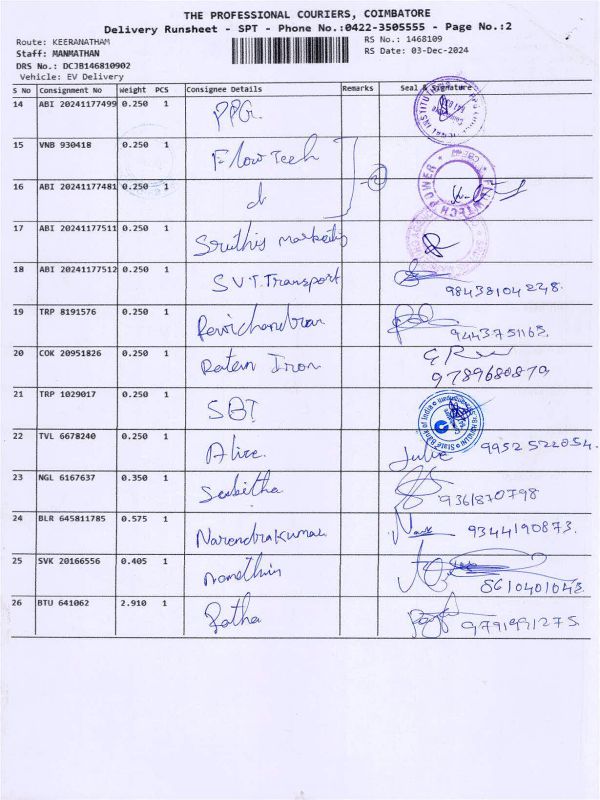 THE PROFESSIONAL COURIERS, COIMBATORE
Delivery Runsheet - SPT - Phone No.:0422-3505555 - Page No.:2
Route: KEERANATHAM
Staff: MANMATHAN
DRS No.: DCJB146810902
Vehicle: EV Delivery
RS No.: 1468109
RS Date: 03-Dec-2024
S No Consignment No Weight PCS Consignee Details Remarks Seal & Signature
14 ABI 20241177499 0.250 1 PPG.
15 VNB 930418 0.250 1 Flow Tech
16 ABI 20241177481 0.250 1 d 2
17 ABI 20241177511 0.250 1 Sruthis marketing
18 ABI 20241177512 0.250 1 SVT.Transport 98438104228.
19 TRP 8191576 0.250 1 Ravichandran 9443751168.
20 COK 20951826 0.250 1 Ratan Iron 9789680879
21 TRP 1029017 0.250 1 SBI State Bank of India
22 TVL 6678240 0.250 1 Alice. Julie 9952522054.
23 NGL 6167637 0.350 1 Sabitha 9361870798
24 BLR 645811785 0.575 1 Narendrakumar 9344190873.
25 SVK 20166556 0.405 1 8610401043.
26 BTU 641062 2.910 1 9791991275